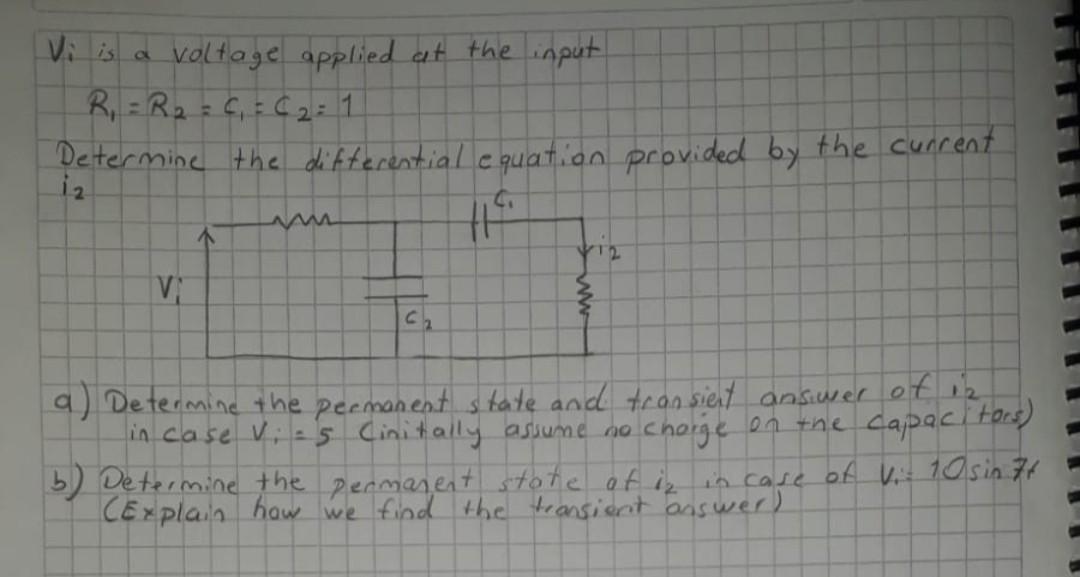 Vi is a voltage applied at the input
R₁ = R₂ = C₁ = C₂ = 1
Determine the differential equation provided by the current
i₂
C₁
i₂
Vi
C₂
a) Determine the permanent state and transient answer of i₂
in case Vi = 5 (initally assume no charge on the capacitors)
b) Determine the permanent state of i₂ in case of Vi = 10 sin 7t
(Explain how we find the transient answer)